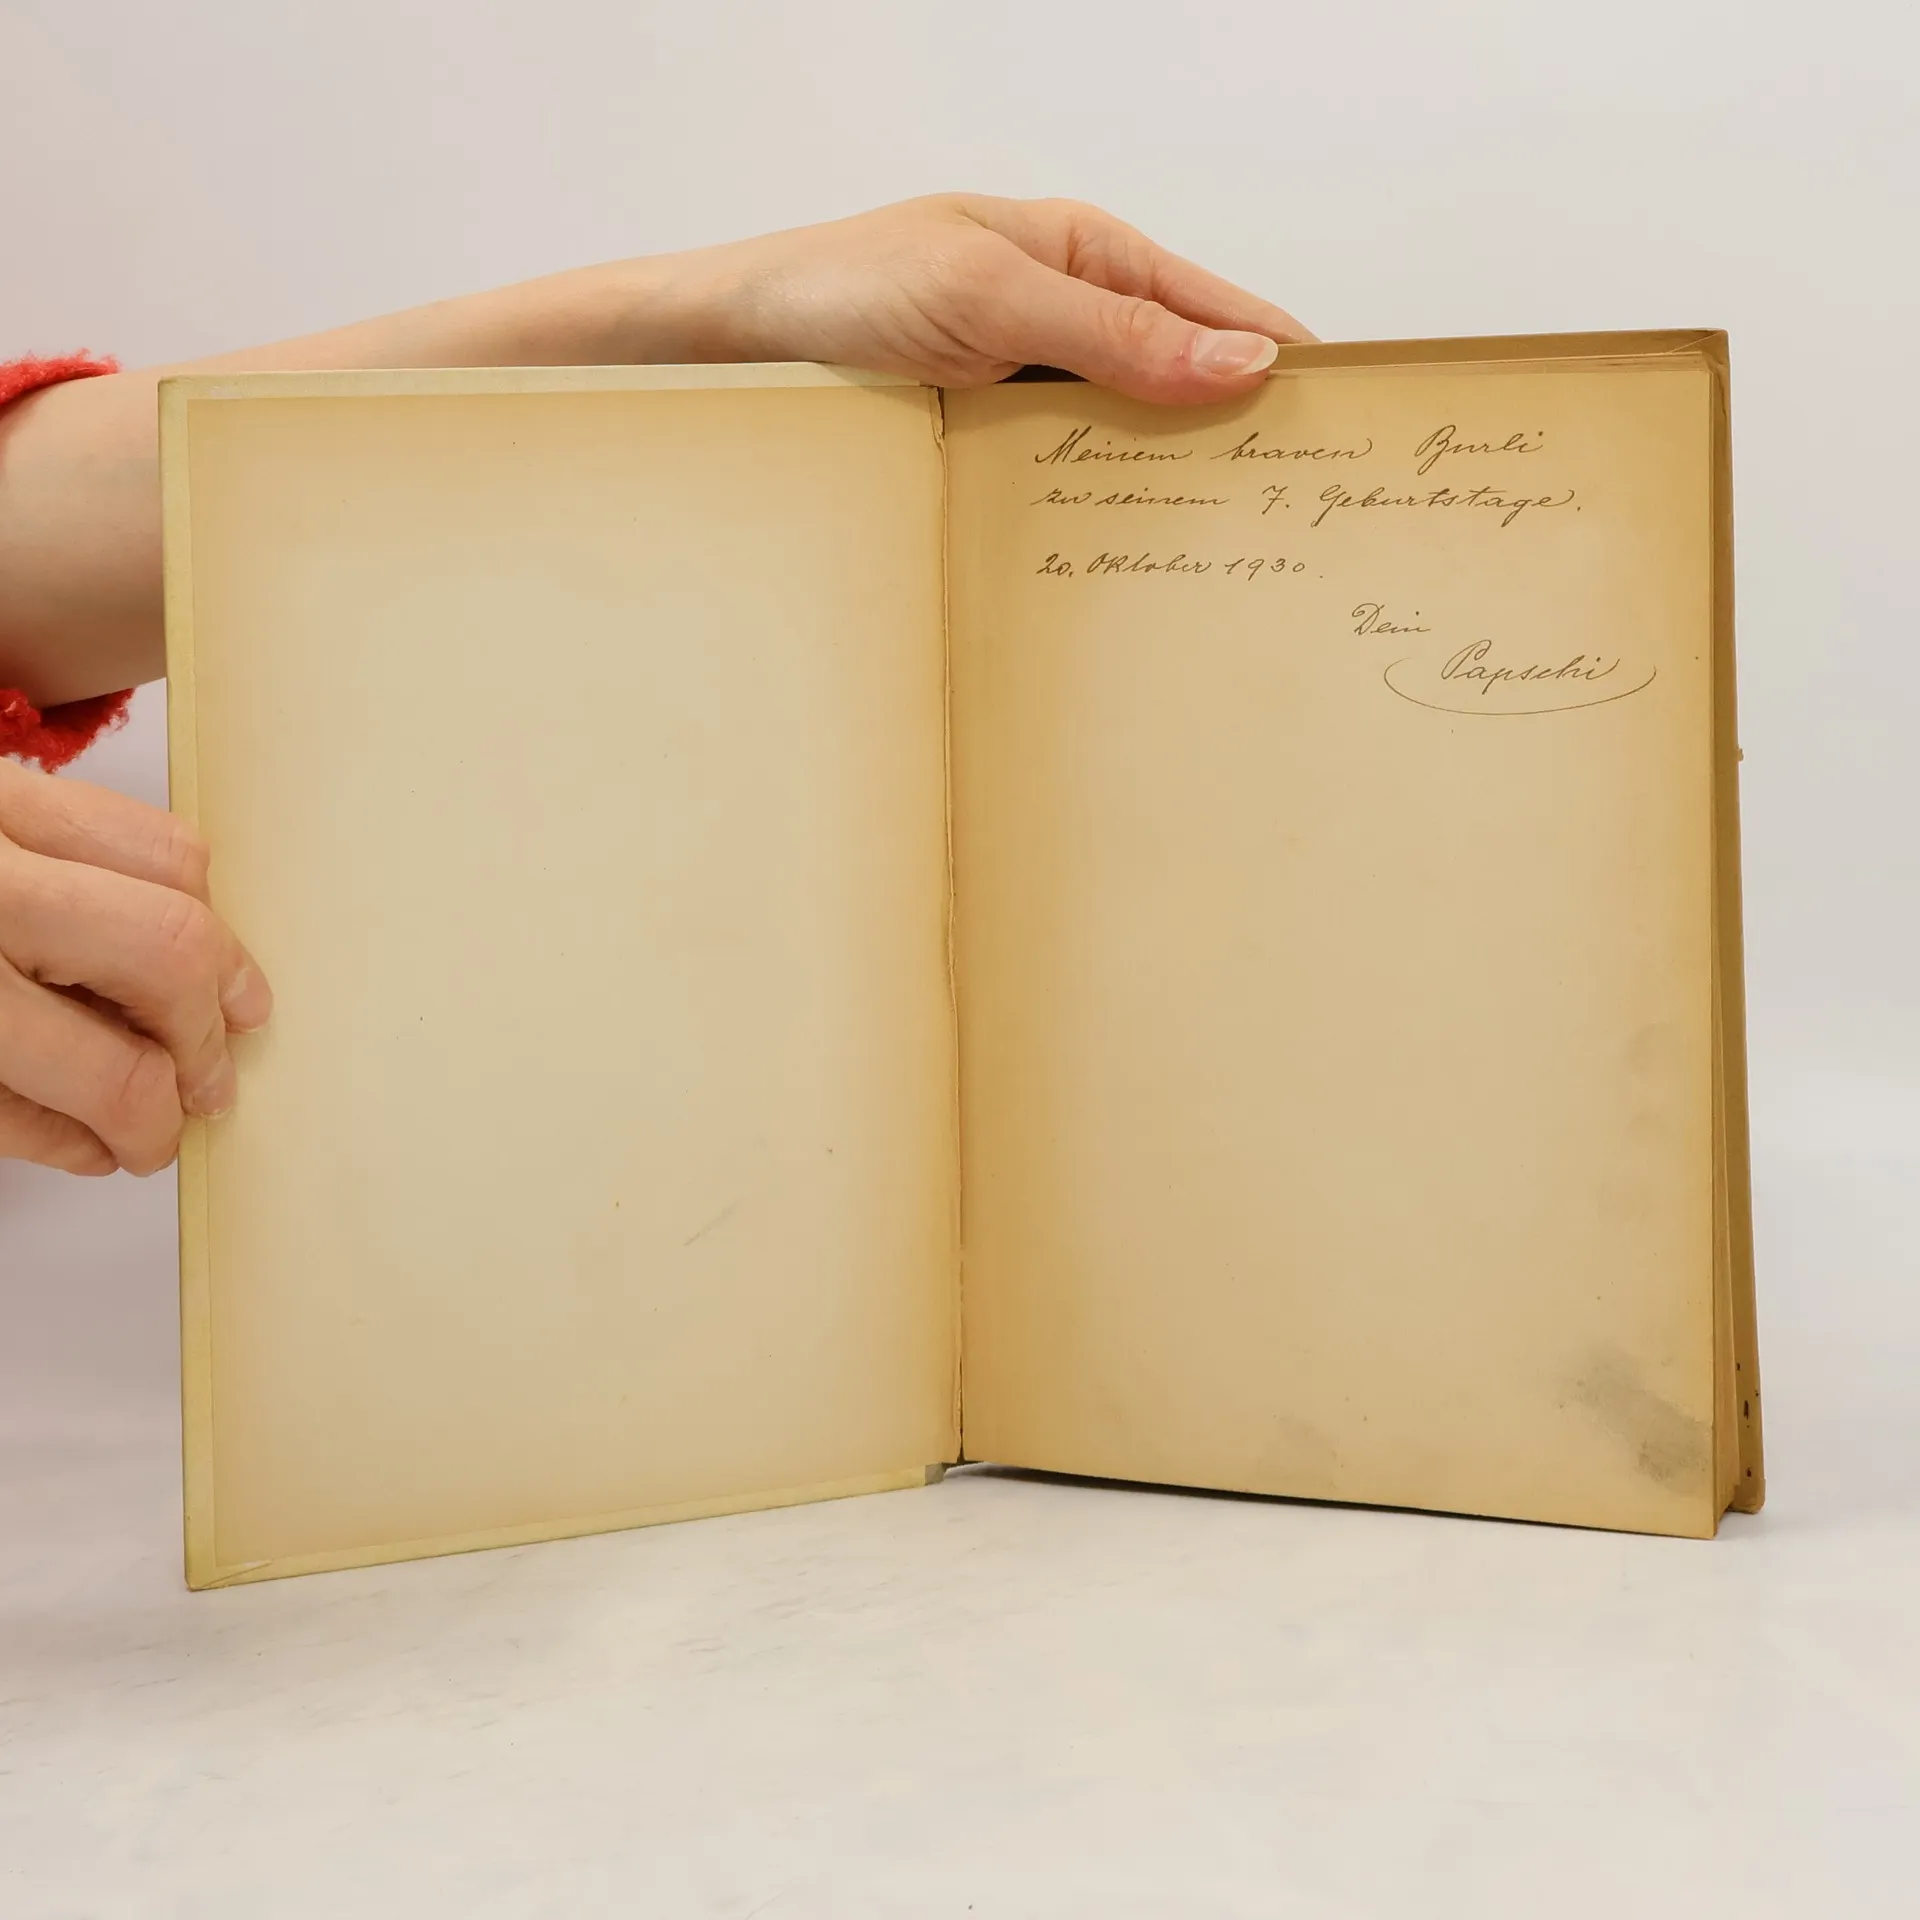 Meinem braven Burli
zu seinem 7. Geburtstage.
20. Oktober 1930.
Dein
Papschi